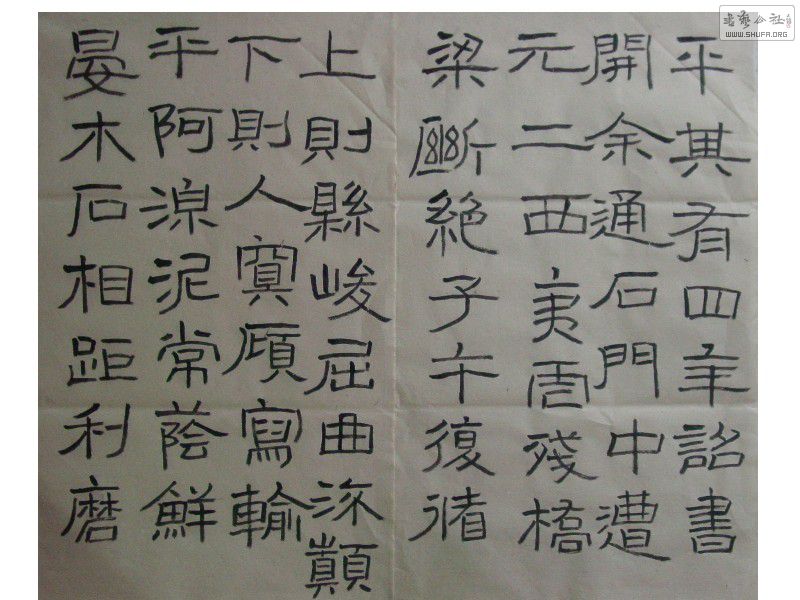 平其有四年詔書
開余通石門中遭
元二西夷虐殘橋
梁斷絶子午復循
上則縣峻屈曲流顛
下則人冥廎寫輸
平阿湶泥常蔭鮮
晏木石相距利磨
书艺公社
WWW.SHUFA.ORG